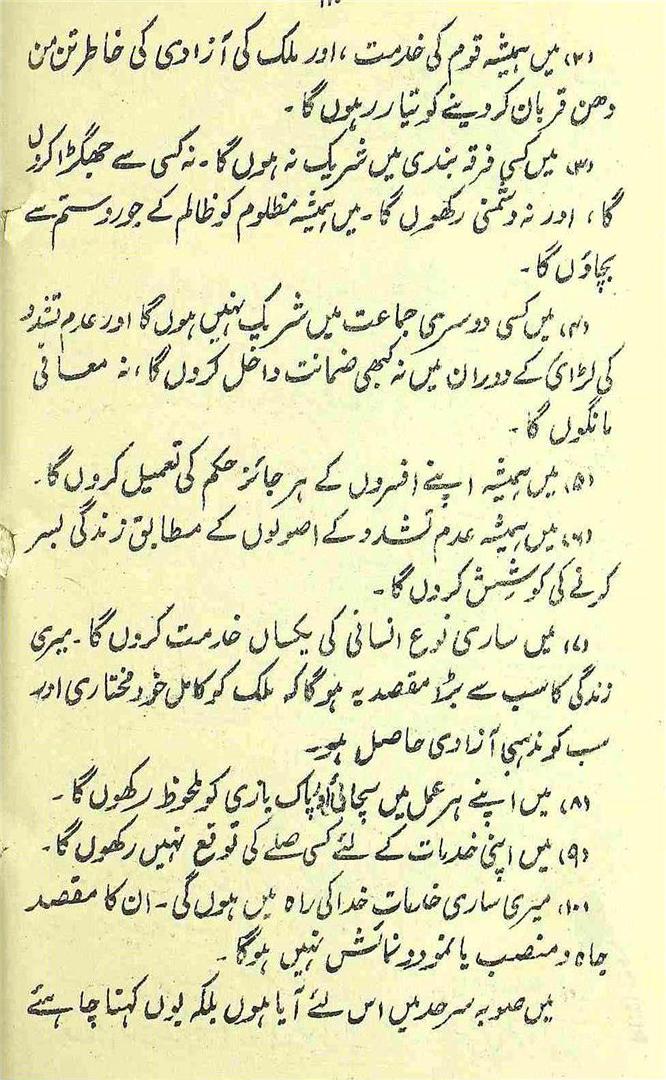 (۲) میں ہمیشہ قوم کی خدمت، اور ملک کی آزادی کی خاطر تن من
دھن قربان کر دینے کو تیار رہوں گا۔
(۳) میں کسی فرقہ بندی میں شریک نہ ہوں گا۔ نہ کسی سے جھگڑا کروں
گا، اور نہ دشمنی رکھوں گا۔ میں ہمیشہ مظلوم کو ظالم کے جور و ستم سے
بچاؤں گا۔
(۴) میں کسی دوسری جماعت میں شریک نہیں ہوں گا اور عدم تشدد
کی لڑائی کے دوران میں نہ کبھی ضمانت داخل کروں گا، نہ معافی
مانگوں گا۔
(۵) میں ہمیشہ اپنے افسروں کے ہر جائز حکم کی تعمیل کروں گا۔
(۶) میں ہمیشہ عدم تشدد کے اصولوں کے مطابق زندگی بسر
کرنے کی کوشش کروں گا۔
(۷) میں ساری نوع انسانی کی یکساں خدمت کروں گا۔ میری
زندگی کا سب سے بڑا مقصد یہ ہوگا کہ ملک کو کامل خود مختاری اور
سب کو مذہبی آزادی حاصل ہو۔
(۸) میں اپنے ہر عمل میں سچائی اور پاک بازی کو ملحوظ رکھوں گا۔
(۹) میں اپنی خدمات کے لئے کسی صلے کی توقع نہیں رکھوں گا۔
(۱۰) میری ساری خدمات خدا کی راہ میں ہوں گی۔ ان کا مقصد
جاہ و منصب یا نمود و نمائش نہیں ہوگا۔
میں صوبہ سرحد میں اس لئے آیا ہوں بلکہ یوں کہنا چاہئے